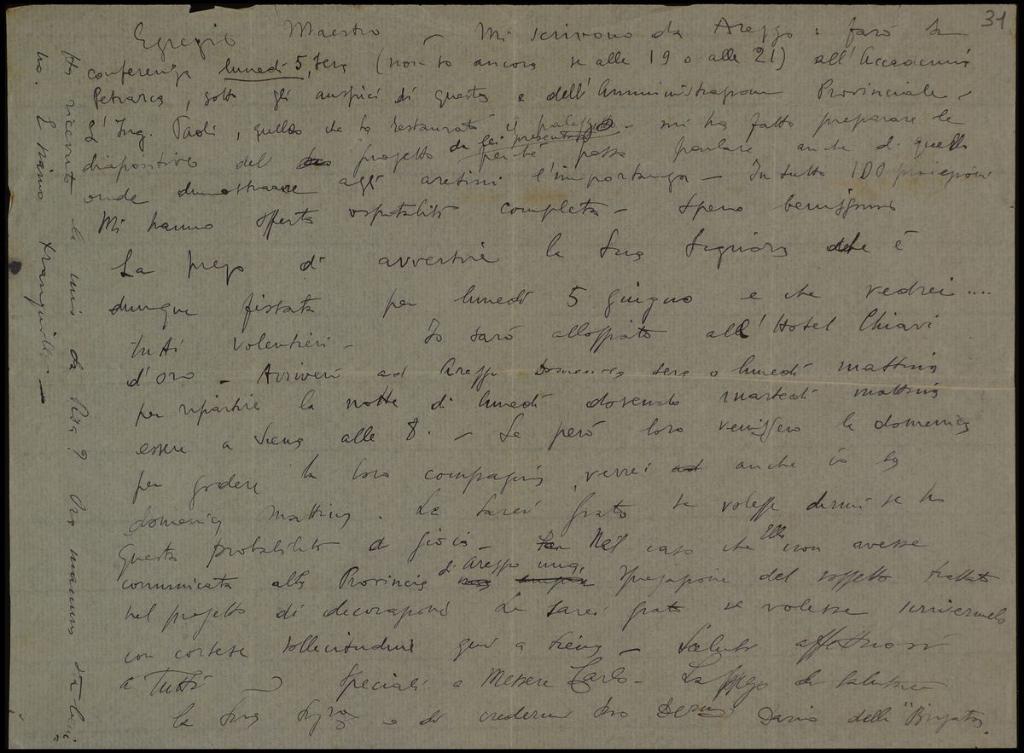 31
Egregio Maestro – Mi scrivono da Arezzo: farò la
conferenza lunedì 5, sera (non so ancora se alle 19 o alle 21) all'Accademia
Petrarca, sotto gli auspici di questa e dell'Amministrazione Provinciale –
L'Ing. Paoli, quello che ha restaurato il palazzo – mi ha fatto preparare le
diapositive del progetto da lei presentato perché possa parlare anche di quello
onde dimostrare agli aretini l'importanza – In tutto 100 proiezioni
Mi hanno offerto ospitalità completa – Spero benissimo
La prego di avvertire la Sua Signora che è
dunque fissata per lunedì 5 giugno e che vedrei ....
tutti volentieri – Io sarò alloggiato all'Hotel Chiavi
d'oro – Arriverò ad Arezzo Domenica sera o lunedì mattina
per ripartire la notte di lunedì dovendo martedì mattina
essere a Siena alle 8. – Se però loro venissero la domenica
per godere la loro compagnia, verrei anche io la
domenica mattina. Le sarei grato se volesse dirmi se ho
questa probabilità di gioia – Nel caso che Ella non avesse
comunicata alla Provincia di Arezzo una spiegazione del soggetto trattato
nel progetto di decorazioni Le sarei grato se volesse scrivermelo
con cortese sollecitudine qui a Siena – Saluti affettuosi
a Tutti – Speciali a Messere Carlo – La prego di salutare
la Sua Sig.ra e di credermi Suo Dev.mo Dario delle "Brigate"
Ha ricevuto la mia da Pisa? Ora mammà sta
ho. E siamo tranquilli –